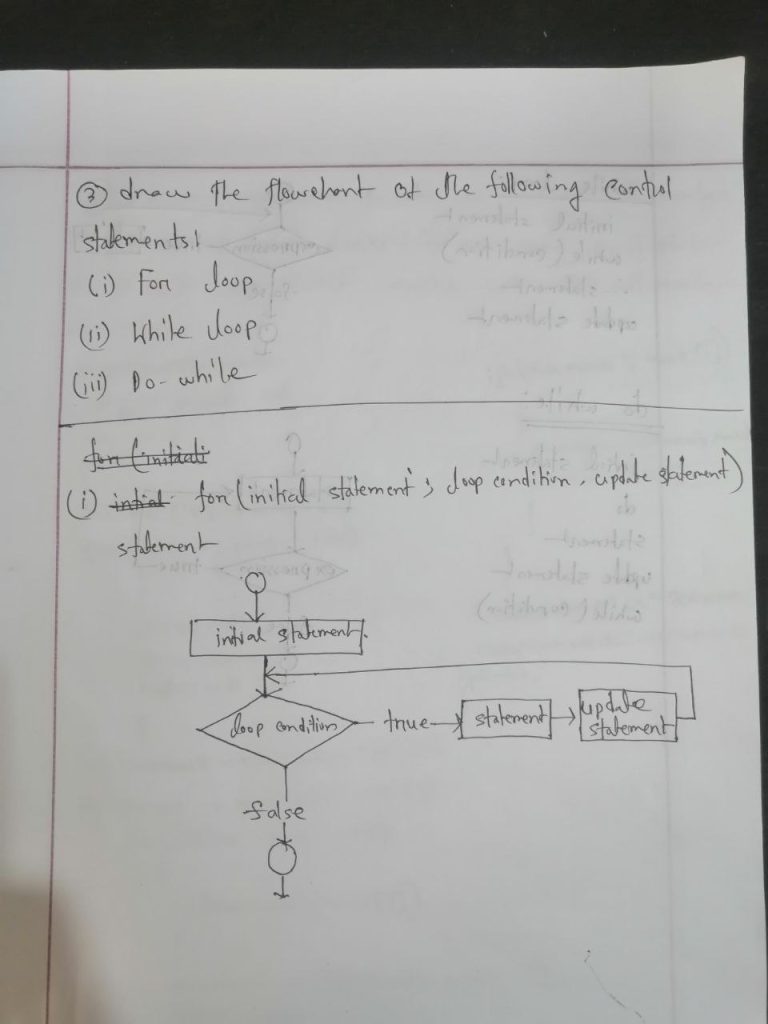 ③ draw the flowchart of the following control
statements!
(i) For loop
(ii) While loop
(iii) Do-while
for (initiali
(i) intial for (initial statement; loop condition, update statement)
statement
initial statement.
loop condition
true
statement
update
statement
false